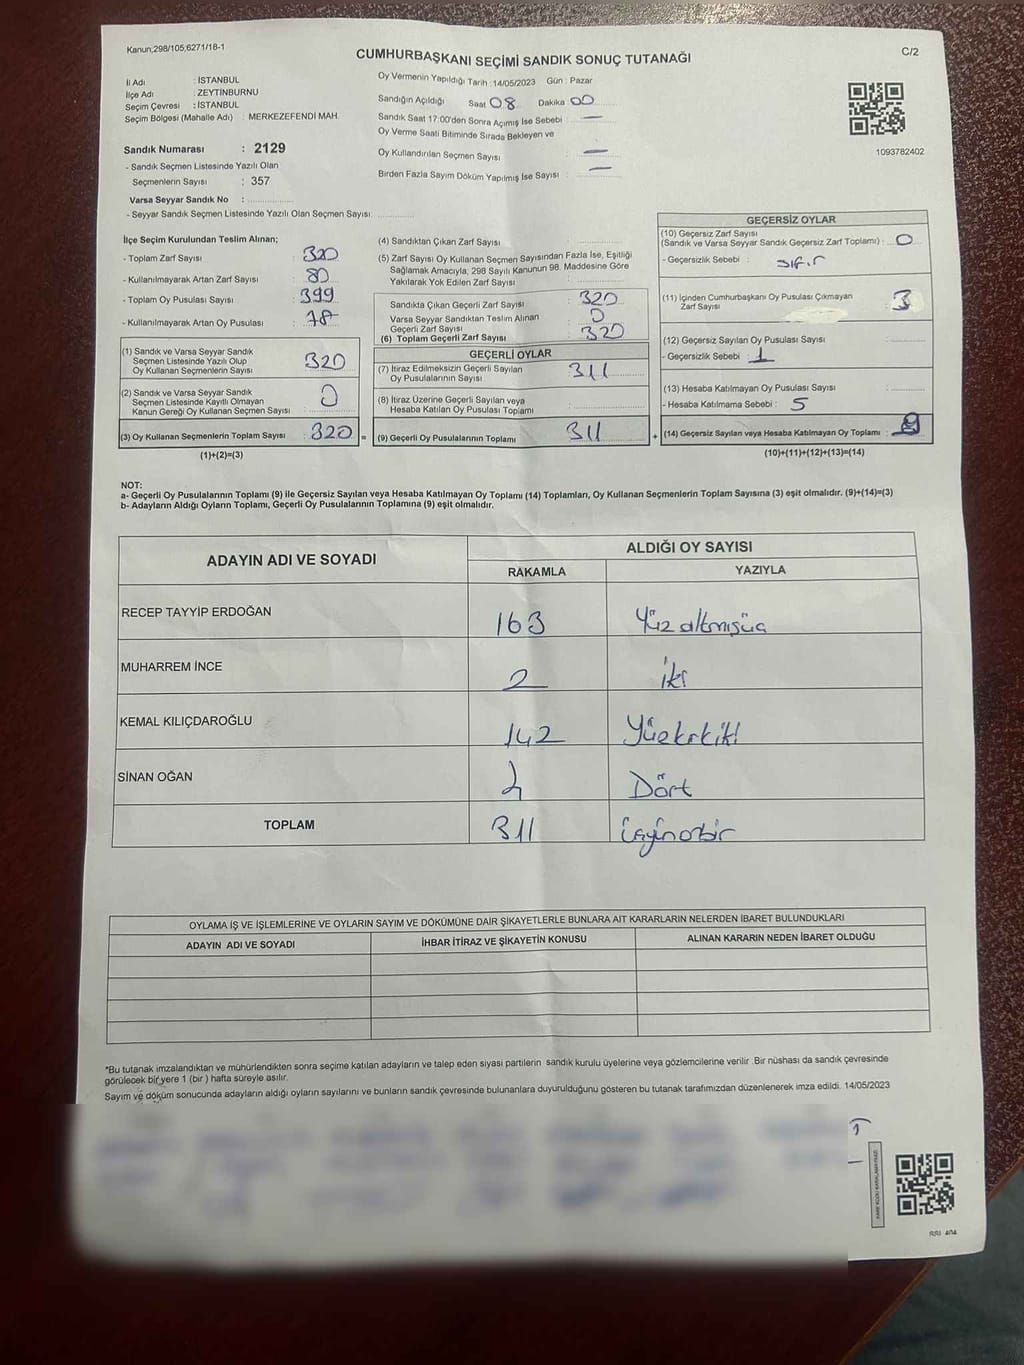 Kanun;298/105;6271/18-1
CUMHURBAŞKANI SEÇİMİ SANDIK SONUÇ TUTANAĞI
C/2
İl Adı : İSTANBUL
İlçe Adı : ZEYTİNBURNU
Seçim Çevresi : İSTANBUL
Seçim Bölgesi (Mahalle Adı) : MERKEZEFENDİ MAH.
Sandık Numarası : 2129
- Sandık Seçmen Listesinde Yazılı Olan
Seçmenlerin Sayısı : 357
Varsa Seyyar Sandık No :
- Seyyar Sandık Seçmen Listesinde Yazılı Olan Seçmen Sayısı:
Oy Vermenin Yapıldığı Tarih :14/05/2023 Gün : Pazar
Sandığın Açıldığı Saat 08 Dakika 00
Sandık Saat 17:00'den Sonra Açımış İse Sebebi : —
Oy Verme Saati Bitiminde Sırada Bekleyen ve
Oy Kullandırılan Seçmen Sayısı : —
Birden Fazla Sayım Döküm Yapılmış İse Sayısı : —
1093782402
İlçe Seçim Kurulundan Teslim Alınan;
- Toplam Zarf Sayısı : 320
- Kullanılmayarak Artan Zarf Sayısı : 80
- Toplam Oy Pusulası Sayısı : 399
- Kullanılmayarak Artan Oy Pusulası : 78
(1) Sandık ve Varsa Seyyar Sandık
Seçmen Listesinde Yazılı Olup
Oy Kullanan Seçmenlerin Sayısı : 320
(2) Sandık ve Varsa Seyyar Sandık
Seçmen Listesinde Kayıtlı Olmayan
Kanun Gereği Oy Kullanan Seçmen Sayısı : 0
(3) Oy Kullanan Seçmenlerin Toplam Sayısı : 320 =
(1)+(2)=(3)
(4) Sandıktan Çıkan Zarf Sayısı :
(5) Zarf Sayısı Oy Kullanan Seçmen Sayısından Fazla İse, Eşitliği
Sağlamak Amacıyla, 298 Sayılı Kanunun 98. Maddesine Göre
Yakılarak Yok Edilen Zarf Sayısı :
Sandıkta Çıkan Geçerli Zarf Sayısı : 320
Varsa Seyyar Sandıktan Teslim Alınan
Geçerli Zarf Sayısı : 0
(6) Toplam Geçerli Zarf Sayısı : 320
GEÇERLİ OYLAR
(7) İtiraz Edilmeksizin Geçerli Sayılan
Oy Pusulalarının Sayısı : 311
(8) İtiraz Üzerine Geçerli Sayılan veya
Hesaba Katılan Oy Pusulası Toplamı :
(9) Geçerli Oy Pusulalarının Toplamı : 311 +
GEÇERSİZ OYLAR
(10) Geçersiz Zarf Sayısı
(Sandık ve Varsa Seyyar Sandık Geçersiz Zarf Toplamı) : 0
- Geçersizlik Sebebi : sıfır
(11) İçinden Cumhurbaşkanı Oy Pusulası Çıkmayan
Zarf Sayısı : 3
(12) Geçersiz Sayılan Oy Pusulası Sayısı :
- Geçersizlik Sebebi : 1
(13) Hesaba Katılmayan Oy Pusulası Sayısı :
- Hesaba Katılmama Sebebi : 5
(14) Geçersiz Sayılan veya Hesaba Katılmayan Oy Toplamı : 9
(10)+(11)+(12)+(13)=(14)
NOT:
a- Geçerli Oy Pusulalarının Toplamı (9) ile Geçersiz Sayılan veya Hesaba Katılmayan Oy Toplamı (14) Toplamları, Oy Kullanan Seçmenlerin Toplam Sayısına (3) eşit olmalıdır. (9)+(14)=(3)
b- Adayların Aldığı Oyların Toplamı, Geçerli Oy Pusulalarının Toplamına (9) eşit olmalıdır.
ADAYIN ADI VE SOYADI
ALDIĞI OY SAYISI
RAKAMLA YAZIYLA
RECEP TAYYİP ERDOĞAN 163 Yüz altmışüç
MUHARREM İNCE 2 iki
KEMAL KILIÇDAROĞLU 142 Yüzkırkiki
SİNAN OĞAN 4 Dört
TOPLAM 311 üçyüzonbir
OYLAMA İŞ VE İŞLEMLERİNE VE OYLARIN SAYIM VE DÖKÜMÜNE DAİR ŞİKAYETLERLE BUNLARA AİT KARARLARIN NELERDEN İBARET BULUNDUKLARI
ADAYIN ADI VE SOYADI İHBAR İTİRAZ VE ŞİKAYETİN KONUSU ALINAN KARARIN NEDEN İBARET OLDUĞU
*Bu tutanak imzalandıktan ve mühürlendikten sonra seçime katılan adayların ve talep eden siyasi partilerin sandık kurulu üyelerine veya gözlemcilerine verilir .Bir nüshası da sandık çevresinde
görülecek bir yere 1 (bir ) hafta süreyle asılır.
Sayım ve döküm sonucunda adayların aldığı oyların sayılarını ve bunların sandık çevresinde bulunanlara duyurulduğunu gösteren bu tutanak tarafımızdan düzenlenerek imza edildi. 14/05/2023